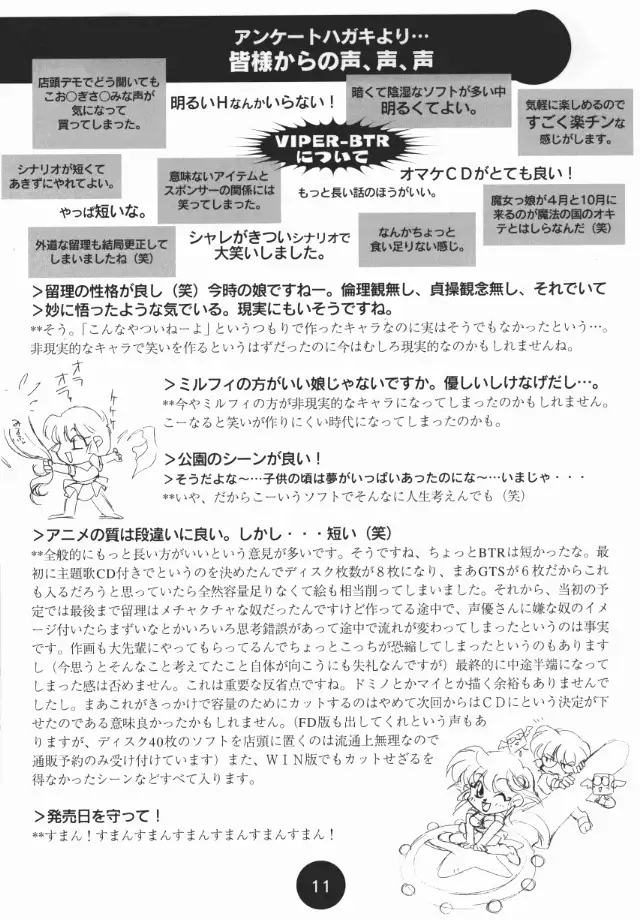 アンケートハガキより…
皆様からの声、声、声
店頭デモでどう聞いても
こお○ぎさ○みな声が
気になって
買ってしまった。
明るいＨなんかいらない！
暗くて陰湿なソフトが多い中
明るくてよい。
気軽に楽しめるので
すごく楽チンな
感じがします。
VIPER-BTR
について
シナリオが短くて
あきずにやれてよい。
やっぱ短いな。
意味ないアイテムと
スポンサーの関係には
笑ってしまった。
オマケＣＤがとても良い！
もっと長い話のほうがいい。
魔女っ娘が４月と10月に
来るのが魔法の国のオキ
テとはしらなんだ（笑）
外道な留理も結局更正して
しまいましたね（笑）
シャレがきついシナリオで
大笑いしました。
なんかちょっと
食い足りない感じ。
＞留理の性格が良し（笑）今時の娘ですねー。倫理観無し、貞操観念無し、それでいて
＞妙に悟ったような気でいる。現実にもいそうですね。
**そう。「こんなやついねーよ」というつもりで作ったキャラなのに実はそうでもなかったという…。
非現実的なキャラで笑いを作るというはずだったのに今はむしろ現実的なのかもしれませんね。
オラ
オラ
＞ミルフィの方がいい娘じゃないですか。優しいしけなげだし…。
**今やミルフィの方が非現実的なキャラになってしまったのかもしれません。
こーなると笑いが作りにくい時代になってしまったのかも。
＞公園のシーンが良い！
＞そうだよな〜…子供の頃は夢がいっぱいあったのにな〜…いまじゃ・・・
**いや、だからこーいうソフトでそんなに人生考えんでも（笑）
＞アニメの質は段違いに良い。しかし・・・短い（笑）
**全般的にもっと長い方がいいという意見が多いです。そうですね、ちょっとBTRは短かったな。最
初に主題歌CD付きでというのを決めたんでディスク枚数が８枚になり、まあGTSが６枚だからこれ
も入るだろうと思っていたら全然容量足りなくて絵も相当削ってしまいました。それから、当初の予
定では最後まで留理はメチャクチャな奴だったんですけど作ってる途中で、声優さんに嫌な奴のイメ
ージ付いたらまずいなとかいろいろ思考錯誤があって途中で流れが変わってしまったというのは事実
です。作画も大先輩にやってもらってるんでちょっとこっちが恐縮してしまったというのもあります
し（今思うとそんなこと考えてたこと自体が向こうにも失礼なんですが）最終的に中途半端になって
しまった感は否めません。これは重要な反省点ですね。ドミノとかマイとか描く余裕もありませんで
したし。まあこれがきっかけで容量のためにカットするのはやめて次回からはＣＤにという決定が下
せたのである意味良かったかもしれません。（FD版も出してくれという声もあ
りますが、ディスク40枚のソフトを店頭に置くのは流通上無理なので
通販予約のみ受け付けています）また、ＷＩＮ版でもカットせざるを
得なかったシーンなどすべて入ります。
＞発売日を守って！
**すまん！すまんすまんすまんすまんすまんすまん！
11